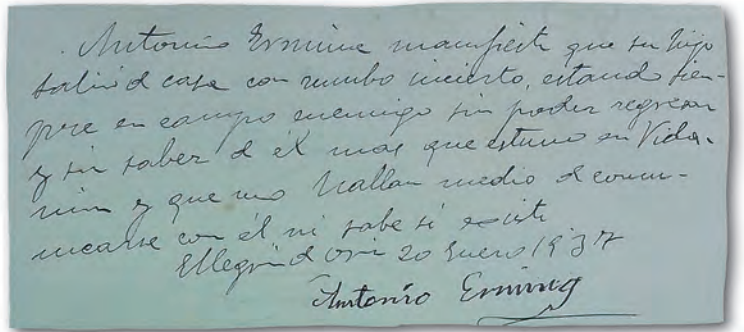 Antonio Ermine manifiesta que su hijo
salió d casa con rumbo incierto, estando siem-
pre en campo enemigo sin poder regresar
y sin saber d él mas que estuvo en Vida-
y que no hallan medio d comu-
nicarse con él ni sabe si existe
20 Enero 1937
Antonio